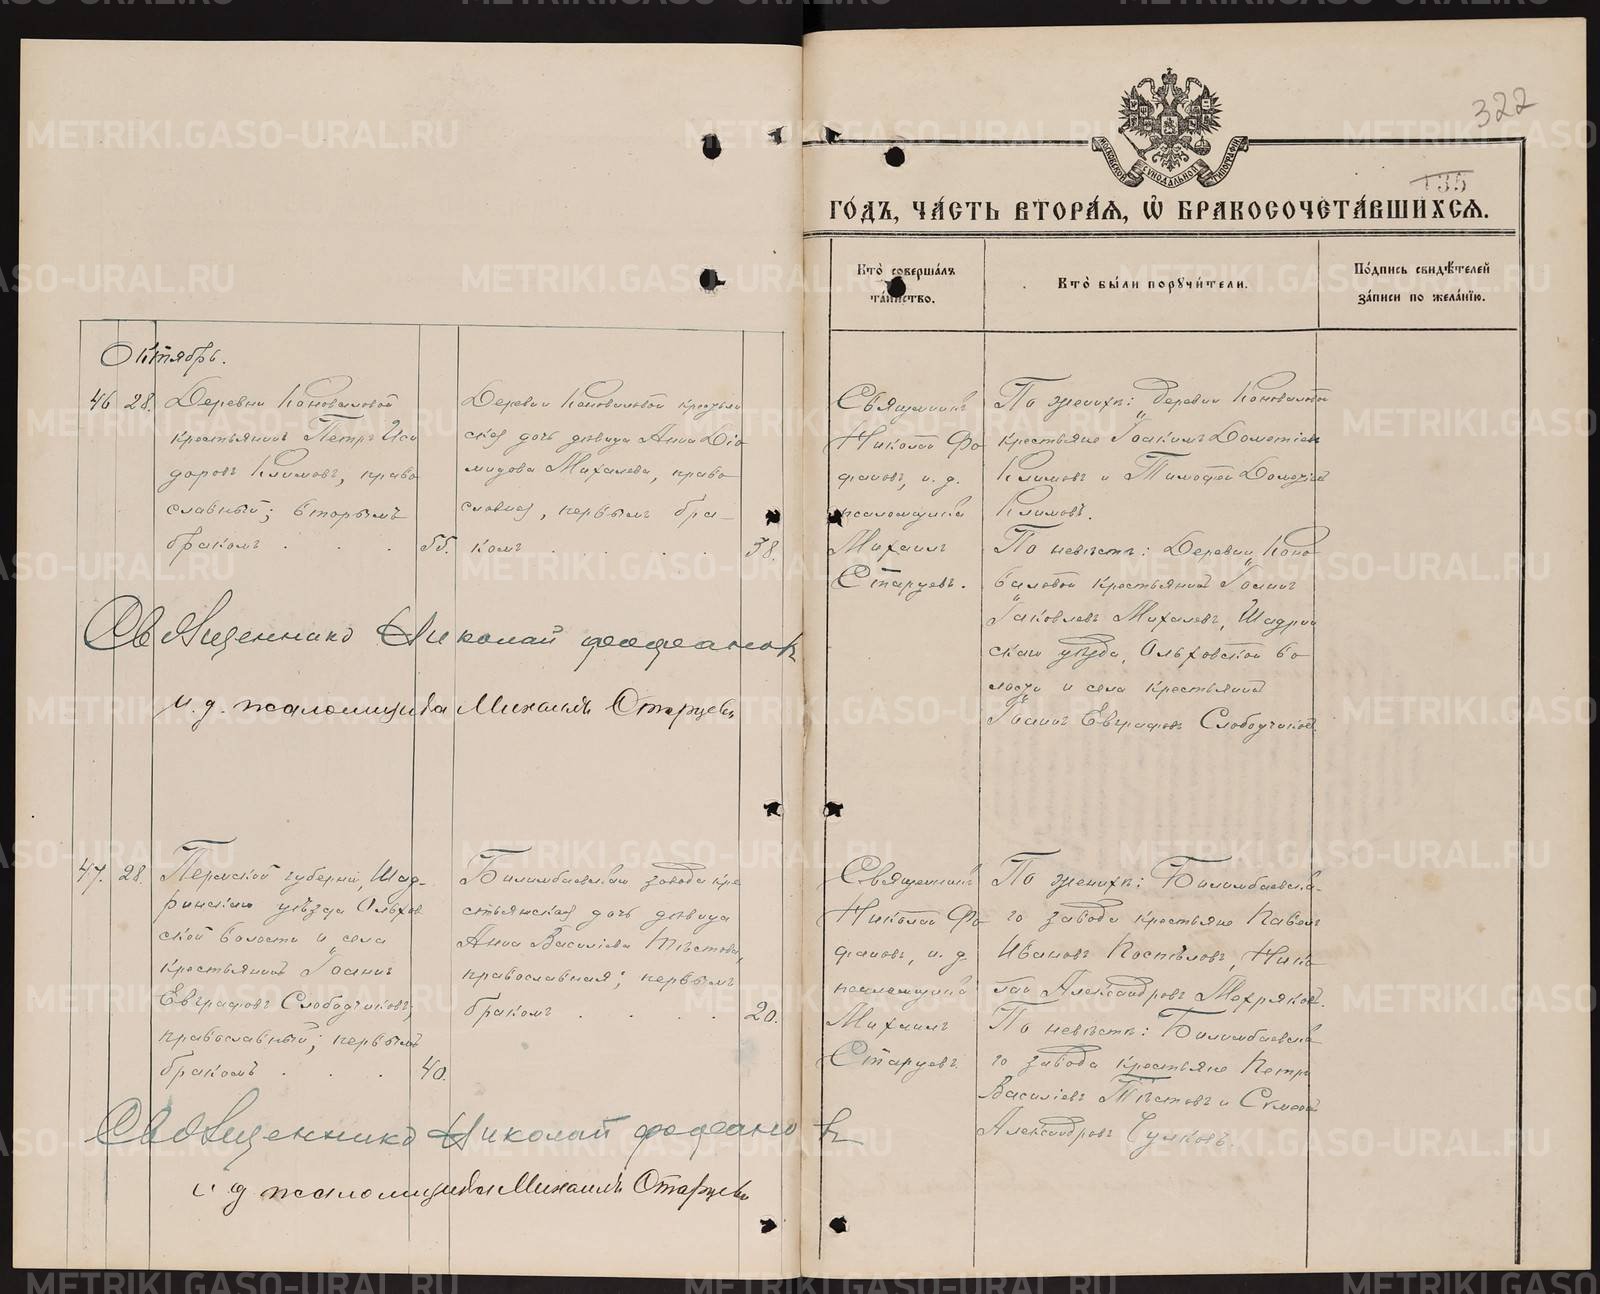 322
МОСКОВСКОЙ СѴНОДАЛЬНОЙ ТИПОГРАФІИ
135
ГО́ДЪ, ЧА́СТЬ ВТОРА́Я, Ѡ҆ БРАКОСОЧЕТА́ВШИХСЯ.
Кто̀ соверша́лъ
та́инство.
Кто̀ бы́ли порꙋчи́тели.
По́дпись свидѣ́телей
за́писи по жела́нїю.
Октябрь.
46 28. Деревни Коноваловой
крестьянинъ Петръ Иси
доровъ Климовъ, право
славный; вторымъ
бракомъ . . . 55.
Деревни Коноваловой крестьян
ская дочь девица Анна Діо
мидова Михалева, право
славная, первымъ бра-
комъ . . . . . 38.
Священникъ
Николай Фо
фановъ, и. д.
псаломщика
Михаилъ
Старцевъ.
По женихѣ: Деревни Коноваловой
крестьяне Іоакимъ Дометіевъ
Климовъ и Тимофей
Климовъ.
По невѣстѣ: Деревни Коно
валовой крестьянинъ Іоаннъ
Іаковлевъ Михалевъ, Шадрин
скаго уѣзда, Ольховской во
лости и села крестьянинъ
Іоаннъ Евграфовъ Слободчиковъ.
Священникъ Николай Фофановъ
и. д. псаломщика Михаилъ Старцевъ
47. 28. Пермской губерніи, Шад-
ринскаго уѣзда Ольхов
ской волости и села
крестьянинъ Іоаннъ
Евграфовъ Слободчиковъ,
православный; первымъ
бракомъ . . . 40.
Билимбаевскаго завода кре
стьянская дочь девица
Анна Василіева Тѣстова,
православная; первымъ
бракомъ . . . . 20.
Священникъ
Николай Фо
фановъ, и. д.
псаломщика
Михаилъ
Старцевъ.
По женихѣ: Билимбаевска-
го завода крестьяне Павелъ
Ивановъ Постѣловъ, Нико
лай Александровъ Мехряковъ.
По невѣстѣ: Билимбаевска
го завода крестьяне Петръ
Василіевъ Тѣстовъ и Симеонъ
Александровъ Чулковъ.
Священникъ Николай Фофановъ
и д псаломщика Михаилъ Старцевъ
METRIKI.GASO-URAL.RU